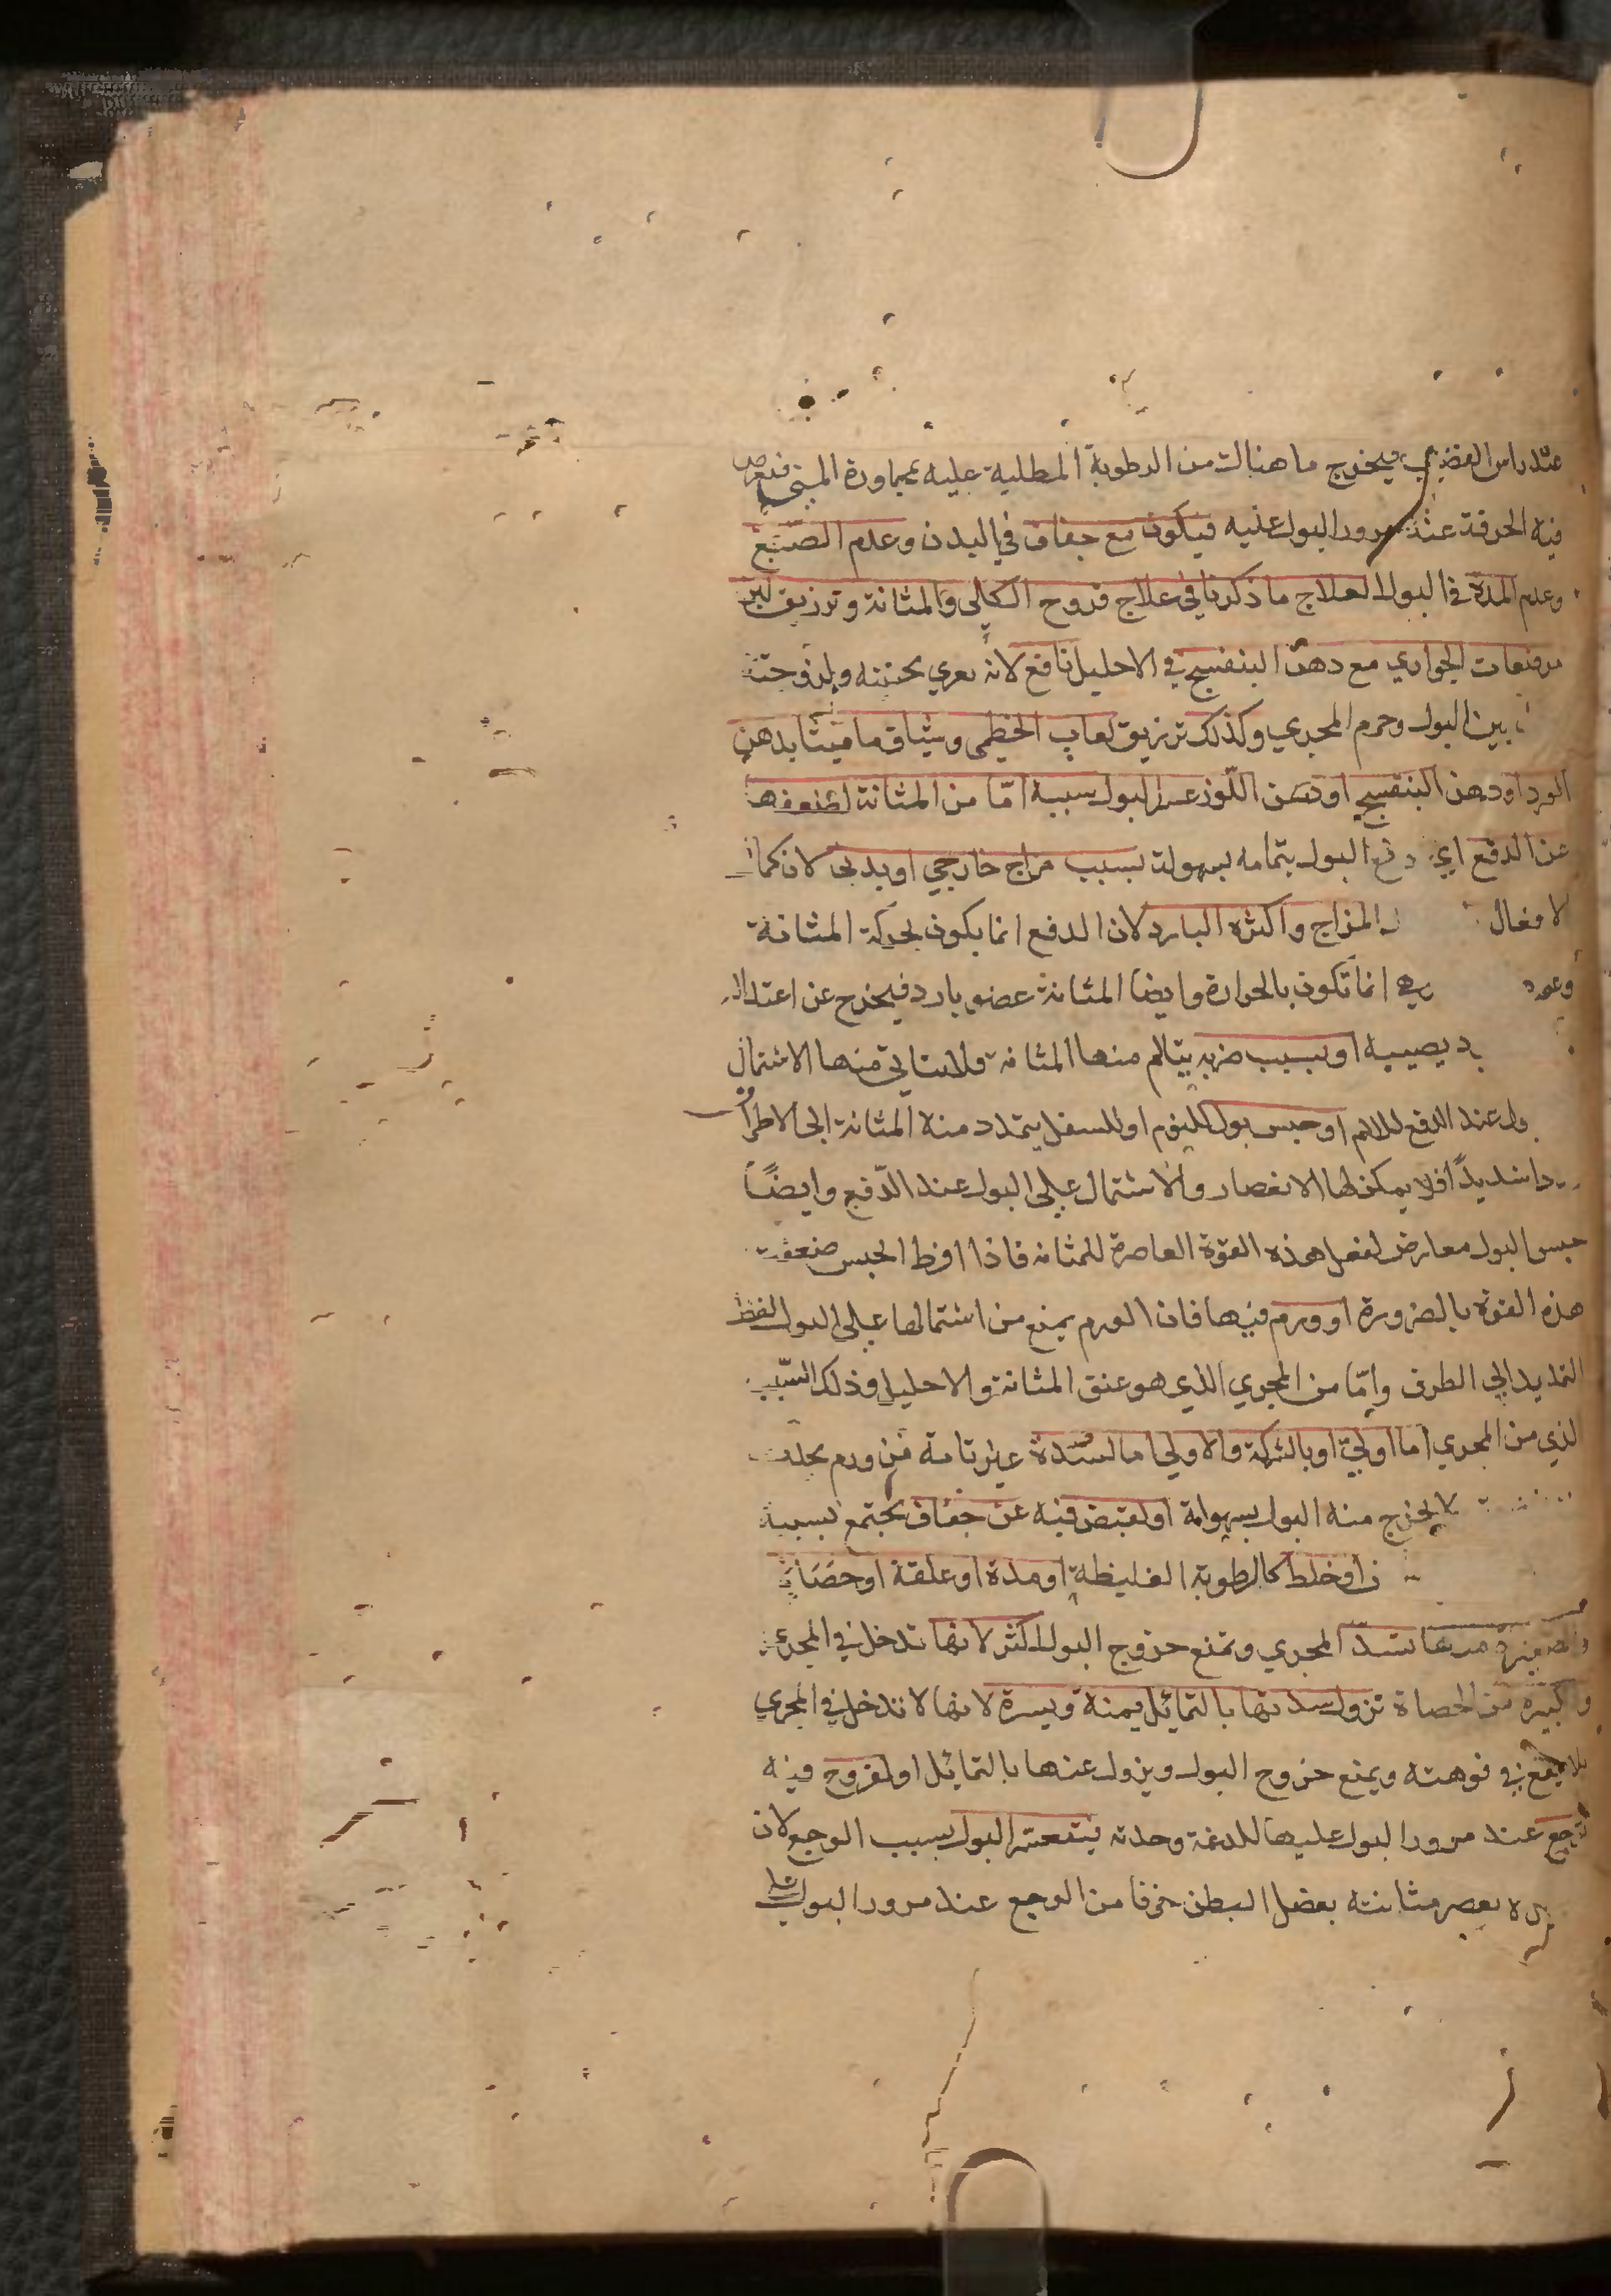 عند راس القضيب فيخرج ما هنالك من الرطوبة المطلية عليه بمجاورة المني فتعرض
فيه الحرقة عند مرور البول عليه فيكون مع جفاف في البدن وعدم الصبغ
وعدم المدة في البول العلاج ما ذكرنا في علاج قروح الكلي والمثانة وتزريق لبن
مرضعات الجواري مع دهن البنفسج في الاحليل نافع لانه يغري بختنته ولزوجته
بين البول وجرم المجري وكذلك تزريق لعاب الخطمي وشياف ماميثا بدهن
الورد او دهن البنفسج او دهن اللوز عسر البول سببه امّا من المثانة لضعفها
عن الدفع اي دفع البول بتمامه بسهولة بسبب مزاج خارجي او بدني لان كمال
الافعال المزاج واكثره البارد لان الدفع انما يكون بحركة المثانة
وهي انما تكون بالحرارة وايضا المثانة عضو بارد فيخرج عن اعتدال
يصيبه او بسبب ضربه يتالم منها المثانة فلا يتاتي منها الاشتمال
عند الدفع للالم او حبس بول للنوم او للسفل يتمدد منه المثانة الي الاطراف
شديدًا فلا يمكن لها الانعصار والاشتمال علي البول عند الدّفع وايضًا
حبس البول معارض لفعل هذه القوة العاصرة للمثانه فاذا افرط الحبس ضعفت
هذه القوة بالضرورة او ورم فيها فان الورم يمنع من اشتمالها علي البول لفظ
التمديد الي الطرف وامّا من المجري الذي هو عنق المثانة والاحليل وذلك السّبب
الذي من المجري اما اولي او بالشركة والاولي اما لسدة غير تامة من ورم بحلث
لا يخرج منه البول بسهولة او لقبض فيه عن جفاف يجتمع بسببه
او خلط كالرطوبة الغليظة او مدة او علقة او حصاة
والصغيرة منها تسد المجري وتمنع خروج البول اكثر لانها تدخل في المجري
والكبيرة من الحصاة تزول سدتها بالتمايل يمنة ويسرة لانها لا تدخل في المجري
بل يقع في فوهته ويمنع خروج البول ويزول عنها بالتمايل او لقروح فيه
توجع عند مرور البول عليها للدغه وحدته فيتعسر البول بسبب الوجع لان
يعصر مثانته بعضل البطن خوفا من الوجع عند مرور البول علي